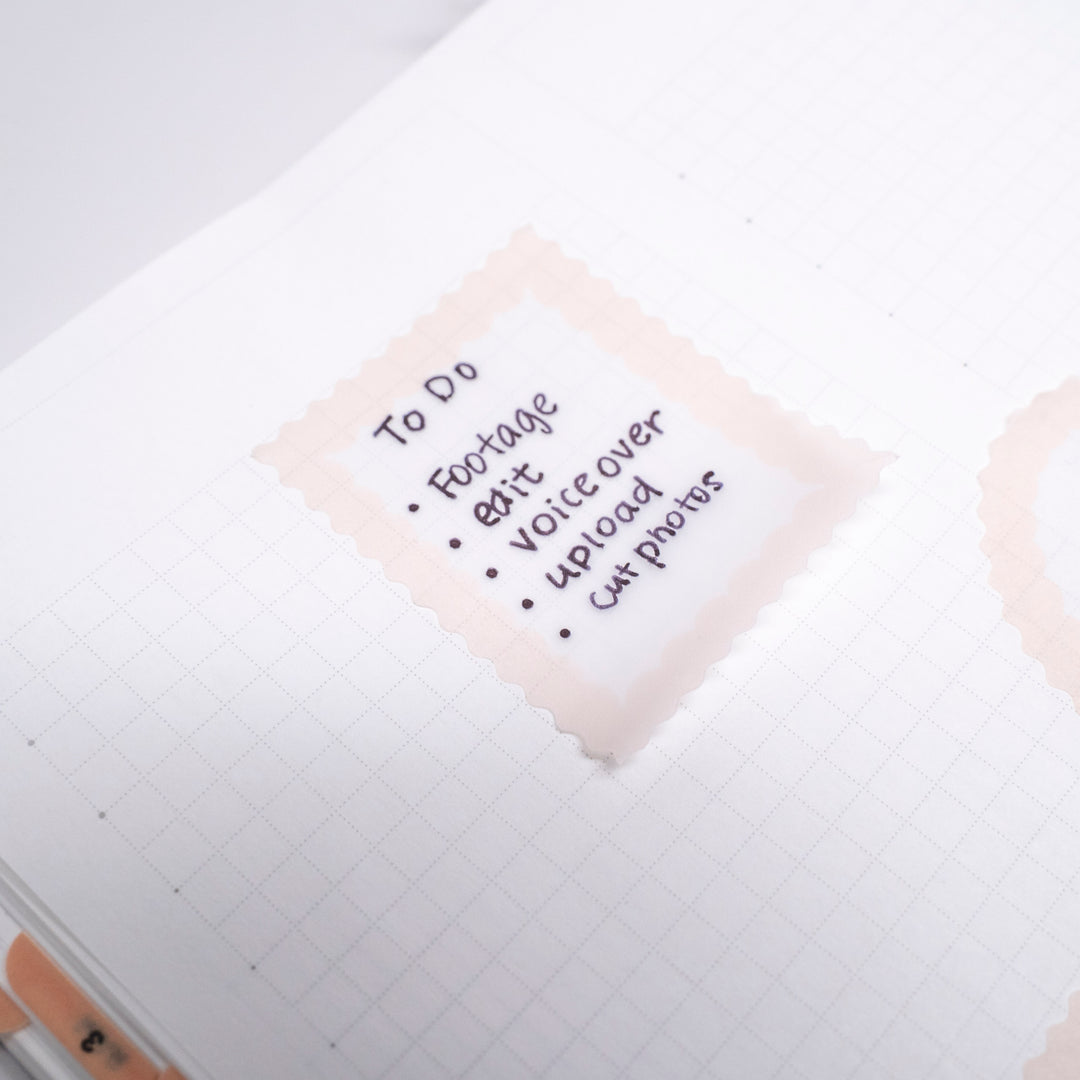 To Do
• Footage
• edit
• voice over
• upload
• cut photos
3